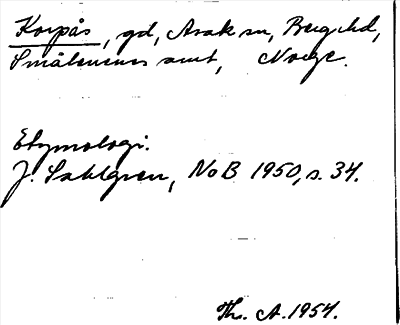 Korpås, gd, Arak sn, Berg hd,
Smålenenes amt, Norge.
Etymologi.
J. Sahlgren, NoB 1950, s. 34.
Th. A. 1954.